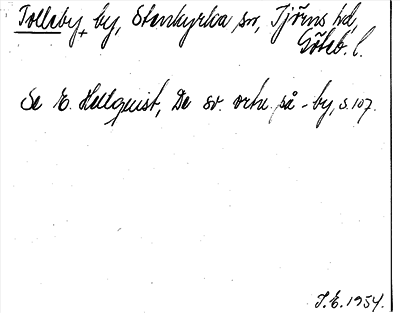 Tolleby, by, Stenkyrka sn, Tjörns hd,
Göteb. l.
Se E. Hellquist, De sv. ortn. på -by, s. 107.
J. E. 1954.